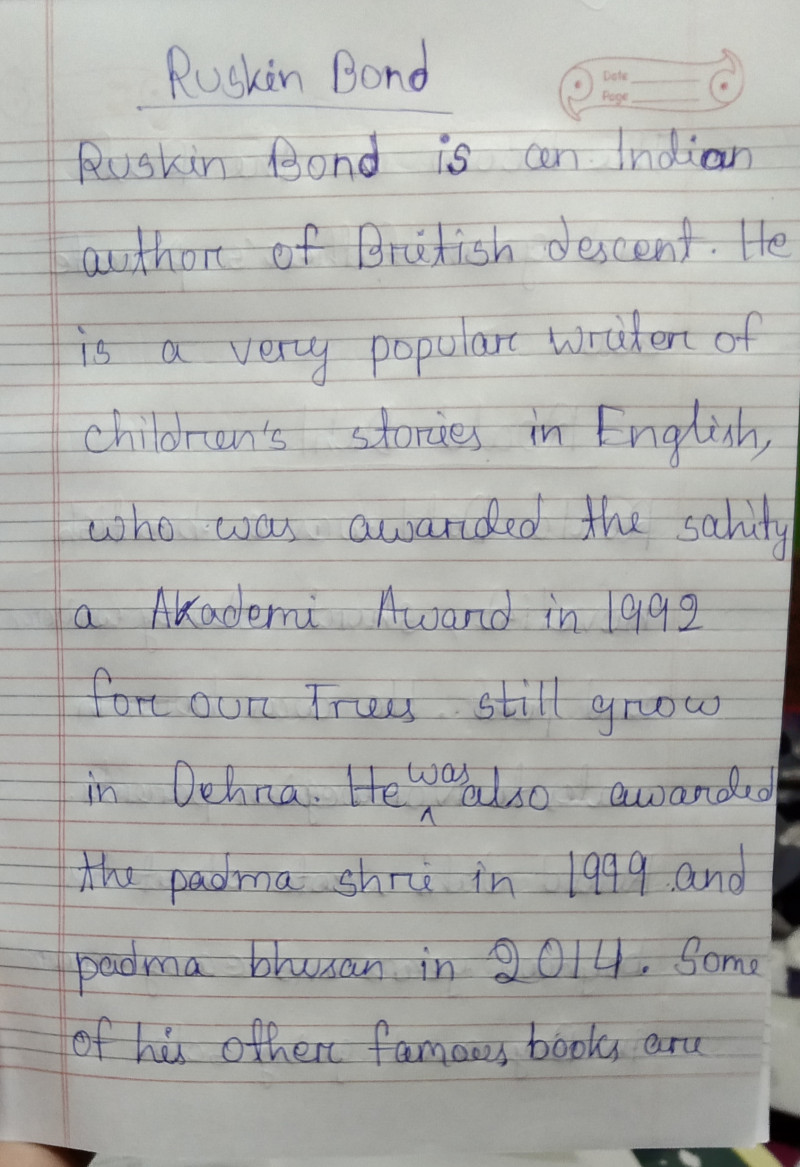 Ruskin Bond
Date
Page
Ruskin Bond is an Indian
author of British descent. He
is a very popular writer of
children's stories in English,
who was awarded the sahity
a Akademi Award in 1992
for our Trees still grow
in Dehra. He was also awarded
the padma shri in 1999 and
padma bhusan in 2014. Some
of his other famous books are